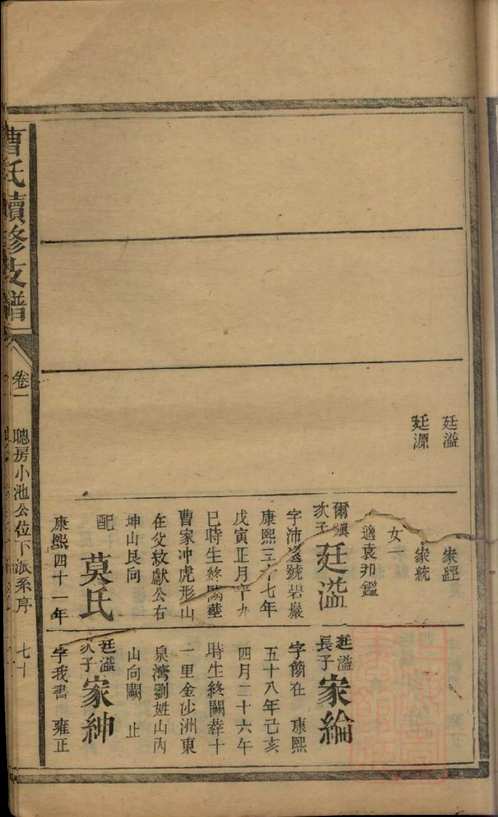 廷溢
廷源
家經
家統
女一
適袁邦鑑
爾順
次子廷溢
字沛遠號岩嚴
康熙三十七年
戊寅正月十九
巳時生終闕葬
曹家冲虎形山
在父敖獻公右
坤山艮向
配莫氏
康熙四十一年
廷溢
長子家綸
字簡在康熙
五十八年己亥
四月二十六午
時生終闕葬十
一里金沙洲東
泉灣劉姓山丙
山向闕止
廷溢
次子家紳
字我書雍正
曹氏續修支譜
卷一
聰房小池公位下派系序
七十